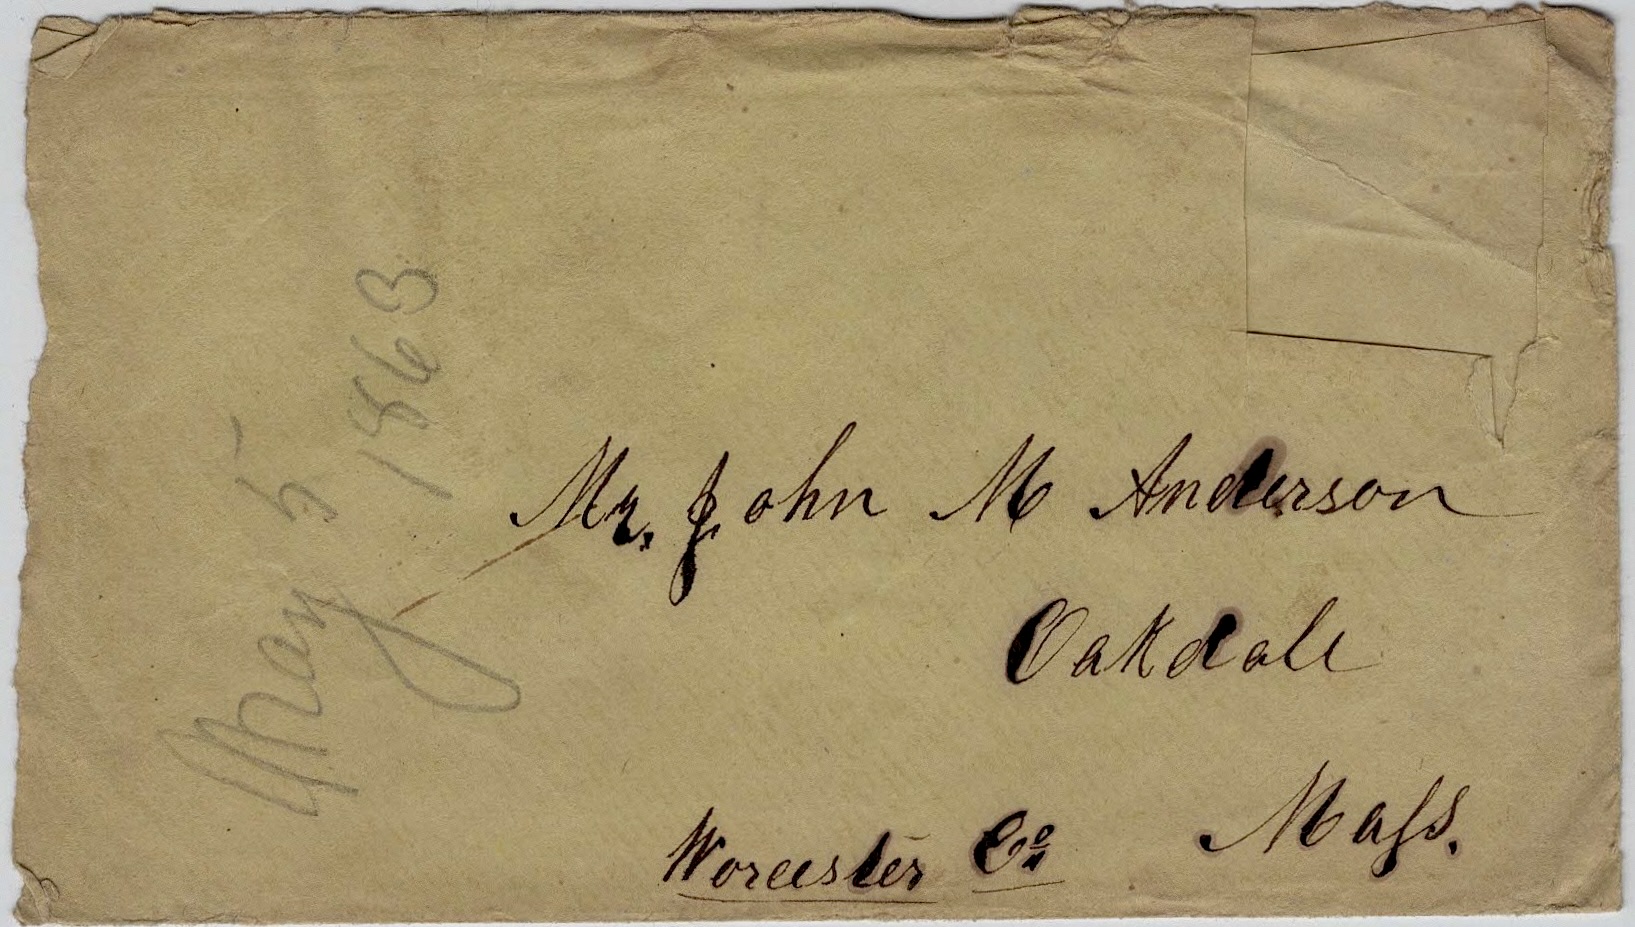 May 5
1863
Mr. John M Anderson
Oakdale
Worcester Co Mass.